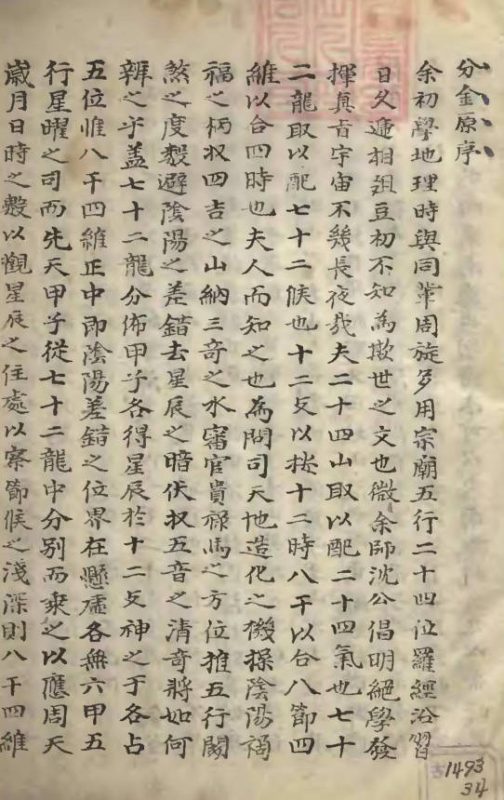 分金原序
余初學地理時與同輩周旋多用宗廟五行二十四位羅經沿習
日久遞相俎豆初不知為欺世之文也微余師沈公倡明絕學發
揮真旨宇宙不幾長夜哉夫二十四山取以配二十四氣也七十
二龍取以配七十二候也十二支以按十二時八干以合八節四
維以合四時也夫人而知之也為問司天地造化之機操陰陽禍
福之柄收四吉之山納三奇之水審官貴祿馬之方位推五行關
煞之度數避陰陽之差錯去星辰之暗伏收五音之清奇將如何
辨之乎盖七十二龍分佈甲子各得星辰於十二支神之于各占
五位惟八干四維正中即陰陽差錯之位界在懸虛各無六甲五
行星曜之司而先天甲子從七十二龍中分別而乘之以應周天
歲月日時之數以觀星辰之住處以察節候之淺深則八干四維
1493
34